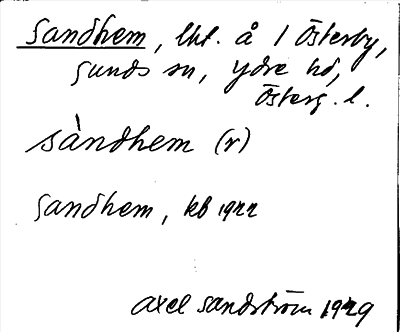 Sandhem, lht. å 1 Österby,
Sunds sn, Ydre hd,
Österg. l.
sàndhem (r)
Sandhem, kb 1922
Axel Sandström 1929